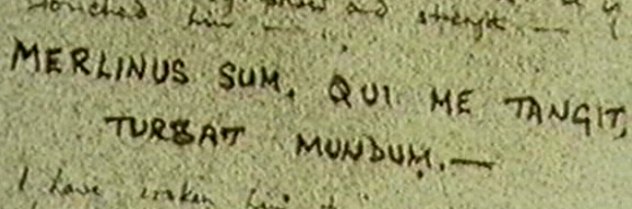 touched him — and strength —
MERLINUS SUM. QUI ME TANGIT,
TURBAT MUNDUM.—
I have